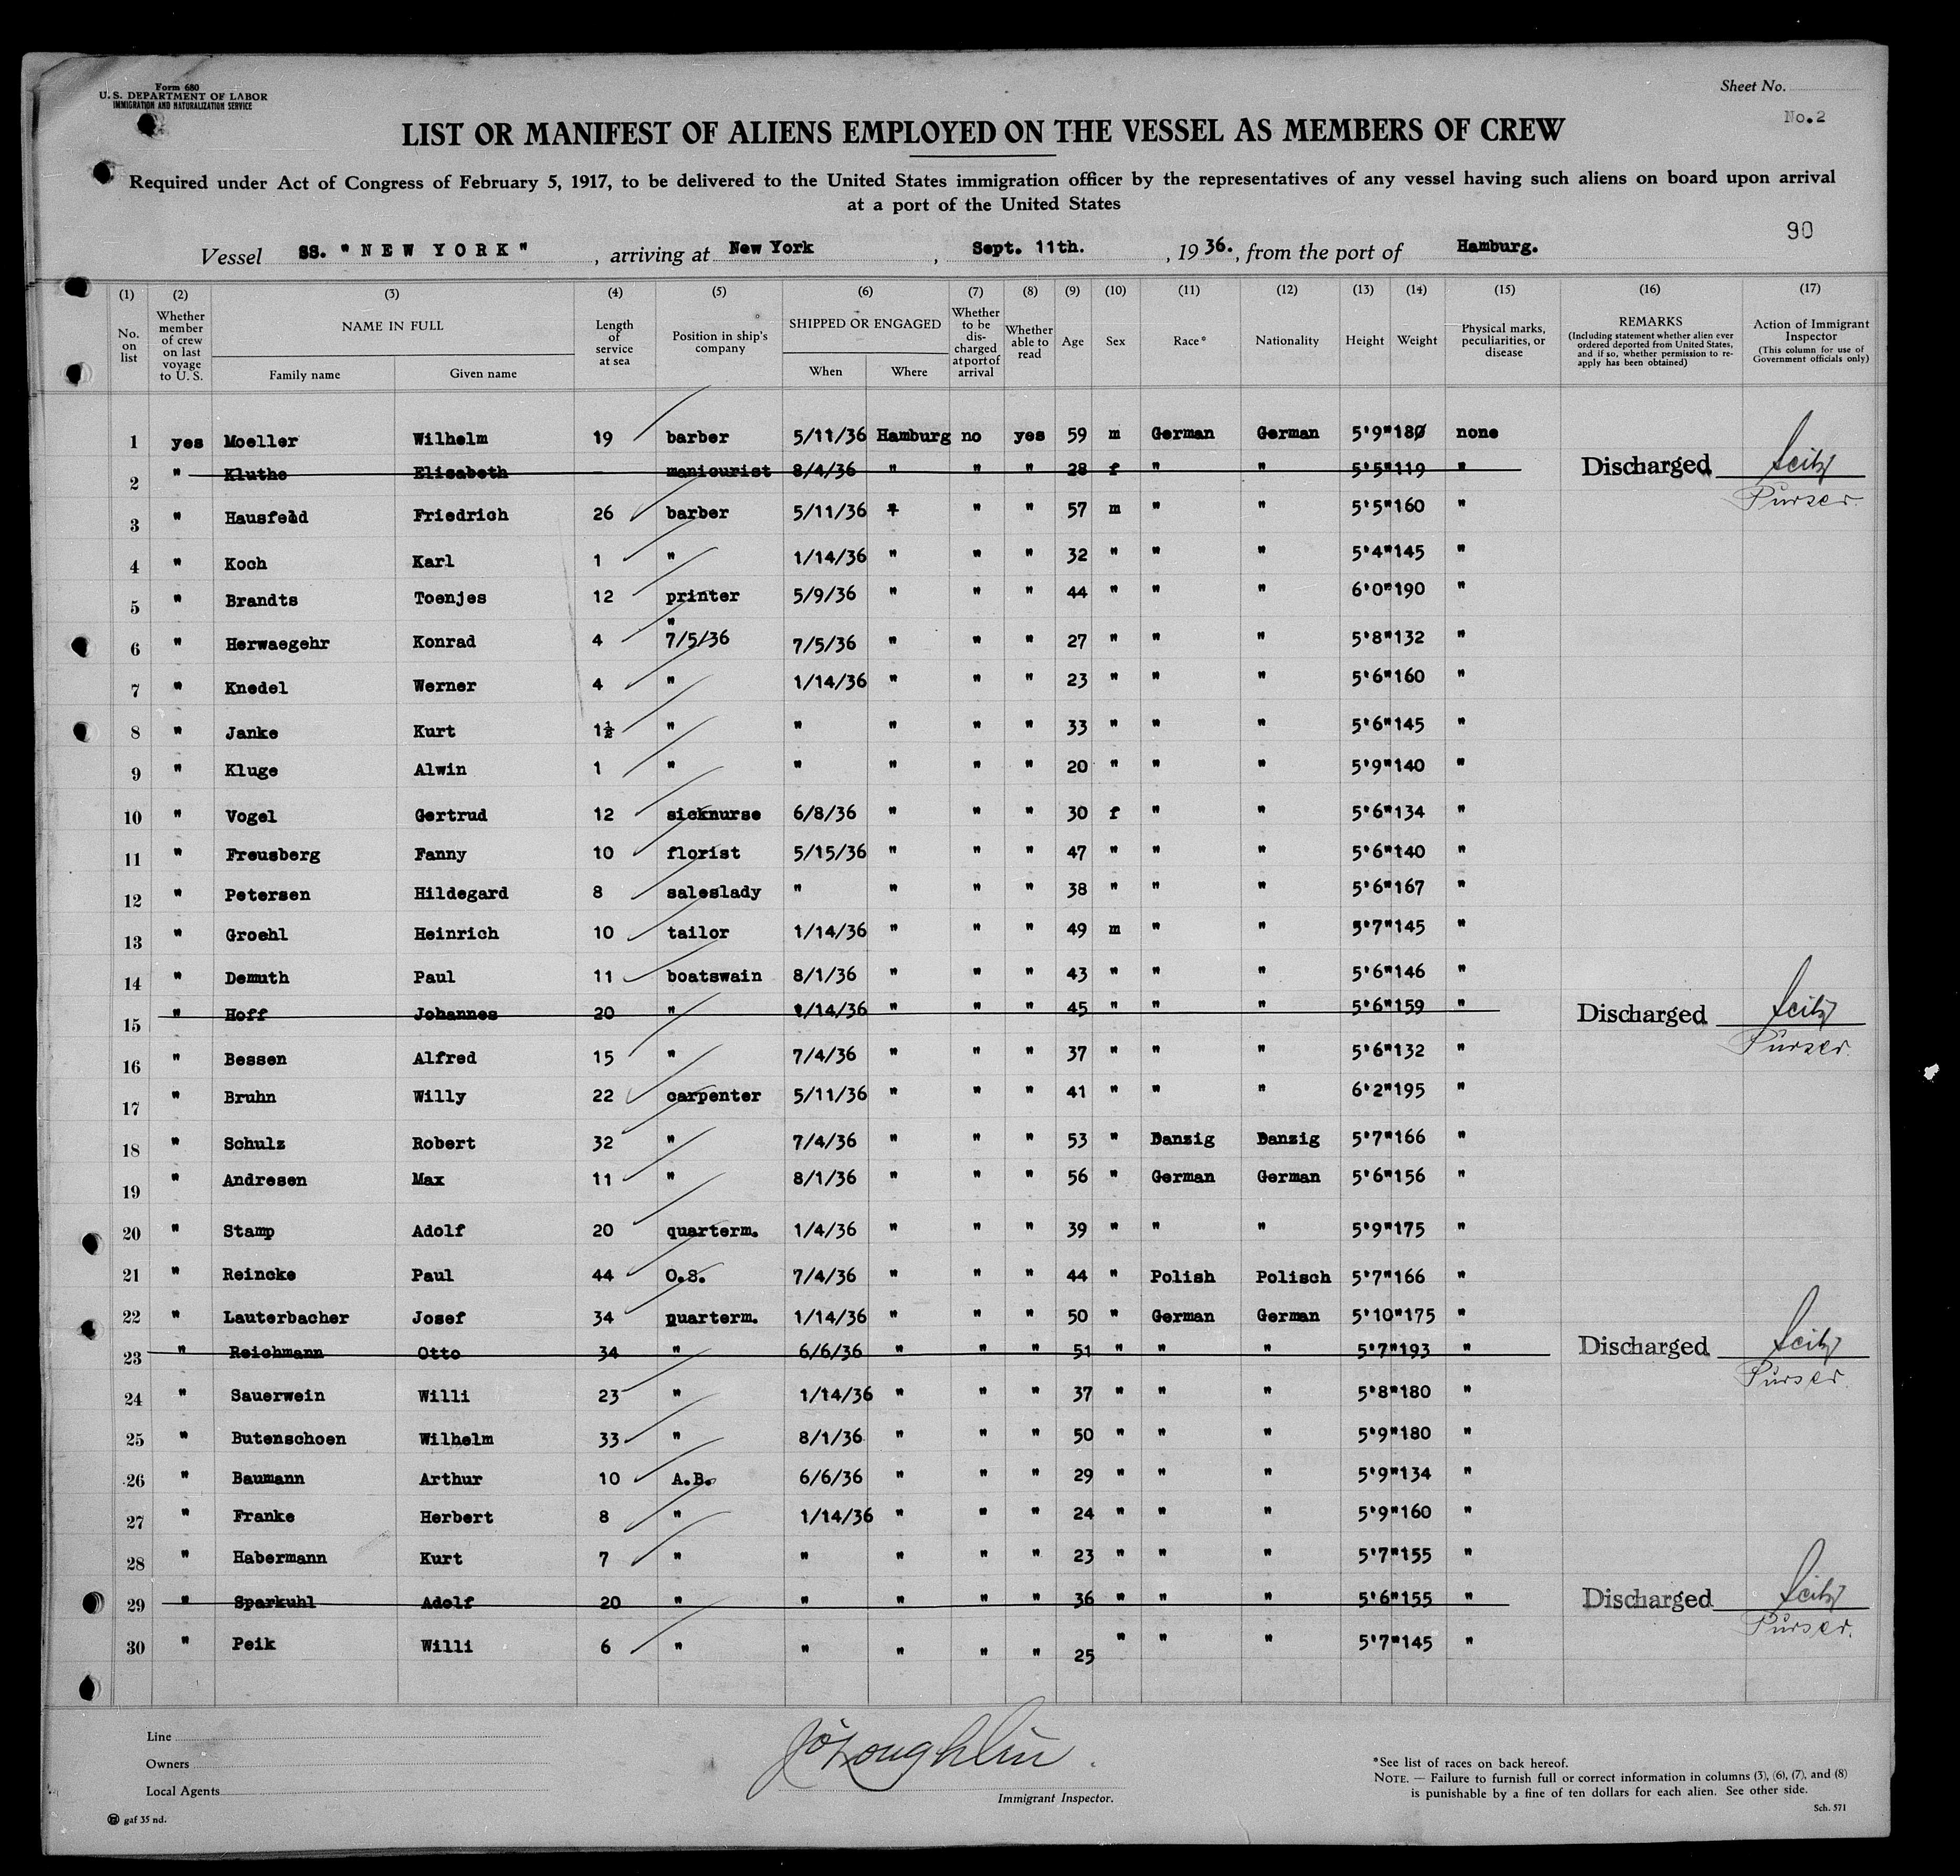 Form 680
U. S. DEPARTMENT OF LABOR
IMMIGRATION AND NATURALIZATION SERVICE
Sheet No.
No.2
LIST OR MANIFEST OF ALIENS EMPLOYED ON THE VESSEL AS MEMBERS OF CREW
Required under Act of Congress of February 5, 1917, to be delivered to the United States immigration officer by the representatives of any vessel having such aliens on board upon arrival
at a port of the United States
90
Vessel SS. "NEW YORK", arriving at New York, Sept. 11th., 1936., from the port of Hamburg.
(1) (2) (3) (4) (5) (6) (7) (8) (9) (10) (11) (12) (13) (14) (15) (16) (17)
No. on list
Whether member of crew on last voyage to U. S.
NAME IN FULL
Family name
Given name
Length of service at sea
Position in ship's company
SHIPPED OR ENGAGED
When
Where
Whether to be discharged at port of arrival
Whether able to read
Age
Sex
Race*
Nationality
Height
Weight
Physical marks, peculiarities, or disease
REMARKS
(Including statement whether alien ever ordered deported from United States, and if so, whether permission to re-apply has been obtained)
Action of Immigrant Inspector
(This column for use of Government officials only)
1 yes Moeller Wilhelm 19 barber 5/11/36 Hamburg no yes 59 m German German 5'9" 180 none
2 " Kluthe Elisabeth - manicurist 8/4/36 " " " 28 f " " 5'5" 119 " Discharged Seitz
Purser.
3 " Hausfeld Friedrich 26 barber 5/11/36 " " " 57 m " " 5'5" 160 "
4 " Koch Karl 1 " 1/14/36 " " " 32 " " " 5'4" 145 "
5 " Brandts Toenjes 12 printer 5/9/36 " " " 44 " " " 6'0" 190 "
6 " Herwaegehr Konrad 4 " 7/5/36 7/5/36 " " " 27 " " " 5'8" 132 "
7 " Knedel Werner 4 " 1/14/36 " " " 23 " " " 5'6" 160 "
8 " Janke Kurt 1½ " " " " " 33 " " " 5'6" 145 "
9 " Kluge Alwin 1 " " " " " 20 " " " 5'9" 140 "
10 " Vogel Gertrud 12 sicknurse 6/8/36 " " " 30 f " " 5'6" 134 "
11 " Freusberg Fanny 10 florist 5/15/36 " " " 47 " " " 5'6" 140 "
12 " Petersen Hildegard 8 saleslady " " " " 38 " " " 5'6" 167 "
13 " Groehl Heinrich 10 tailor 1/14/36 " " " 49 m " " 5'7" 145 "
14 " Demuth Paul 11 boatswain 8/1/36 " " " 43 " " " 5'6" 146 "
15 " Hoff Johannes 20 " 1/14/36 " " " 45 " " " 5'6" 159 " Discharged Seitz
Purser.
16 " Bessen Alfred 15 " 7/4/36 " " " 37 " " " 5'6" 132 "
17 " Bruhn Willy 22 carpenter 5/11/36 " " " 41 " " " 6'2" 195 "
18 " Schulz Robert 32 " 7/4/36 " " " 53 " Danzig Danzig 5'7" 166 "
19 " Andresen Max 11 " 8/1/36 " " " 56 " German German 5'6" 156 "
20 " Stamp Adolf 20 quarterm. 1/4/36 " " " 39 " " " 5'9" 175 "
21 " Reincke Paul 44 O.S. 7/4/36 " " " 44 " Polish Polisch 5'7" 166 "
22 " Lauterbacher Josef 34 quarterm. 1/14/36 " " " 50 " German German 5'10" 175 "
23 " Reichmann Otto 34 " 6/6/36 " " " 51 " " " 5'7" 193 " Discharged Seitz
Purser.
24 " Sauerwein Willi 23 " 1/14/36 " " " 37 " " " 5'8" 180 "
25 " Butenschoen Wilhelm 33 " 8/1/36 " " " 50 " " " 5'9" 180 "
26 " Baumann Arthur 10 A.B. 6/6/36 " " " 29 " " " 5'9" 134 "
27 " Franke Herbert 8 " 1/14/36 " " " 24 " " " 5'9" 160 "
28 " Habermann Kurt 7 " " " " " 23 " " " 5'7" 155 "
29 " Sparkuhl Adolf 20 " " " " " 36 " " " 5'6" 155 " Discharged Seitz
Purser.
30 " Peik Willi 6 " " " " " 25 " " " 5'7" 145 "
Line
Owners
Local Agents
gaf 35 nd.
J O'Loughlin
Immigrant Inspector.
*See list of races on back hereof.
NOTE. — Failure to furnish full or correct information in columns (3), (6), (7), and (8)
is punishable by a fine of ten dollars for each alien. See other side.
Sch. 571